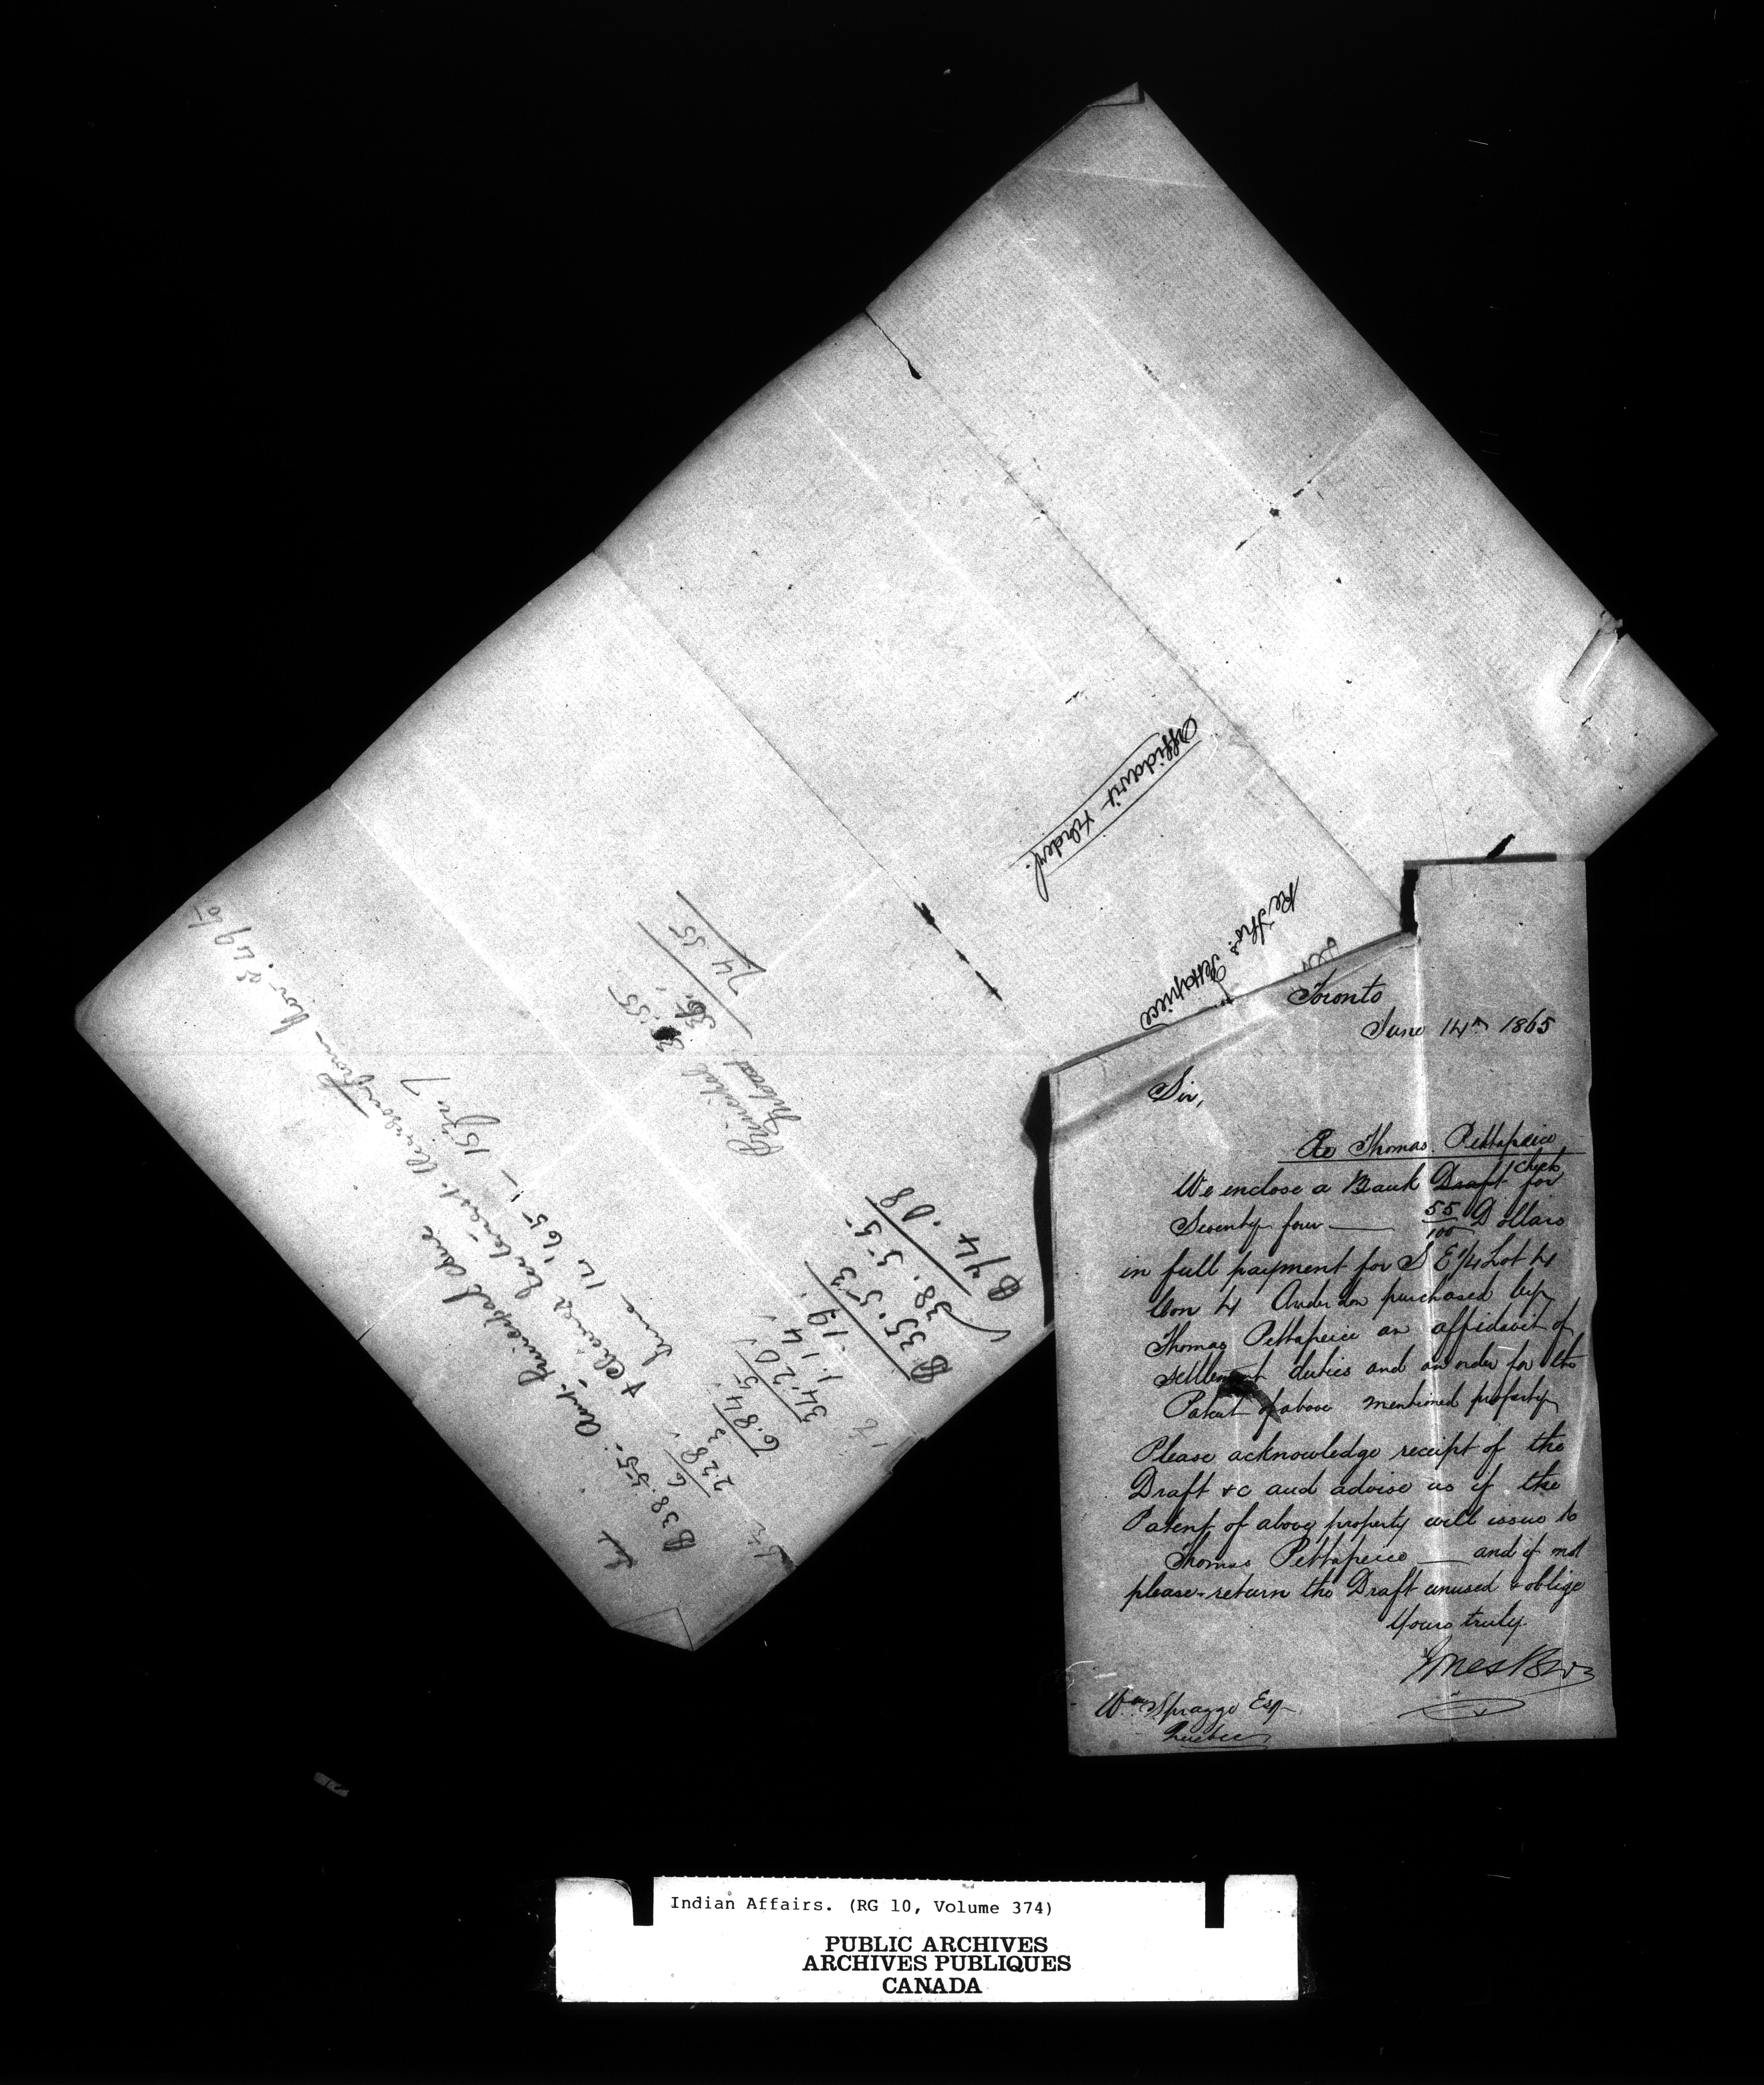 Toronto
June 14th 1865
Sir,
Re Thomas Pettapeice
We enclose a Bank Draft check for
Seventy four — 55/100 Dollars
in full payment for S E 1/4 Lot 4
Con 4 Anderdon purchased by
Thomas Pettapeice an affidavit of
settlement duties and an order for the
Patent of above mentioned property
Please acknowledge receipt of the
Draft &c and advise us if the
Patent of above property will issue to
Thomas Pettapeice — and if not
please return the Draft unused & oblige
Yours truly
Jones Bros
Wm Spragge Esq
Quebec
Affidavit & Order
Re Thos Pettapeice
Principal 38.55
Interest 36.
74 55
From Nov 49
15 yr 7
June 14 '65
$38.55. Amt. Principal due
6
228
3 45
6.84
34.20
1.14
.19
$35.53
38.55
$74.08
Indian Affairs. (RG 10, Volume 374)
PUBLIC ARCHIVES
ARCHIVES PUBLIQUES
CANADA